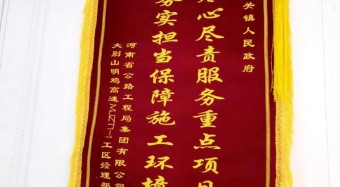 关镇人民政府
心尽责服务重点项目
务实担当保障施工环境
河南省公路工程局集团有限公司
大别山明鸡高速MJTJ-1工区经理部